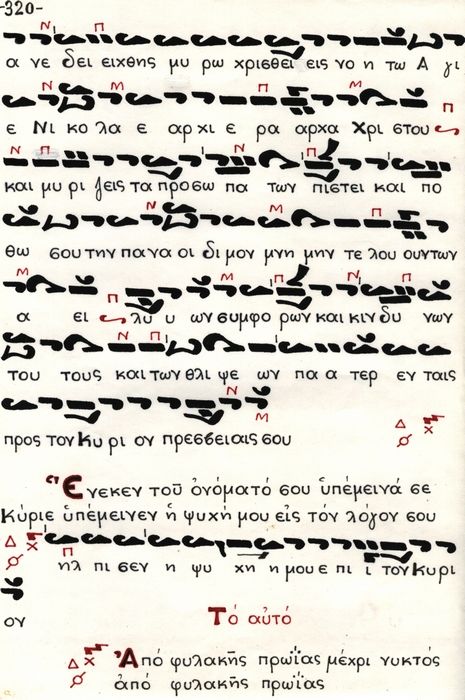 -320-
α νε δει ειχθης μυ ρω χρισθει εις νο η τω Α γι
ε Νι κο λα ε αρ χι ε ρα αρχα Χρι στου
και μυ ρι ζεις τα προσω πα των πιστει και πο
θω σου την πανα οι δι μον μνη μην τε λου ουντων
α ει λυ υ ων συμφο ρων και κιν δυ νων
του τους και των θλι ψε ων πα α τερ εν ταις
προς τον Κυ ρι ον πρεσβειαις σου
Ἕνεκεν τοῦ ὀνόματό σου ὑπέμεινά σε
Κύριε ὑπέμεινεν ἡ ψυχή μου εἰς τόν λόγον σου
ηλ πι σεν η ψυ χη η μου ε πι ι τον Κυρι
ον
Τό αὐτό
Ἀπό φυλακῆς πρωΐας μέχρι νυκτός
ἀπό φυλακῆς πρωΐας